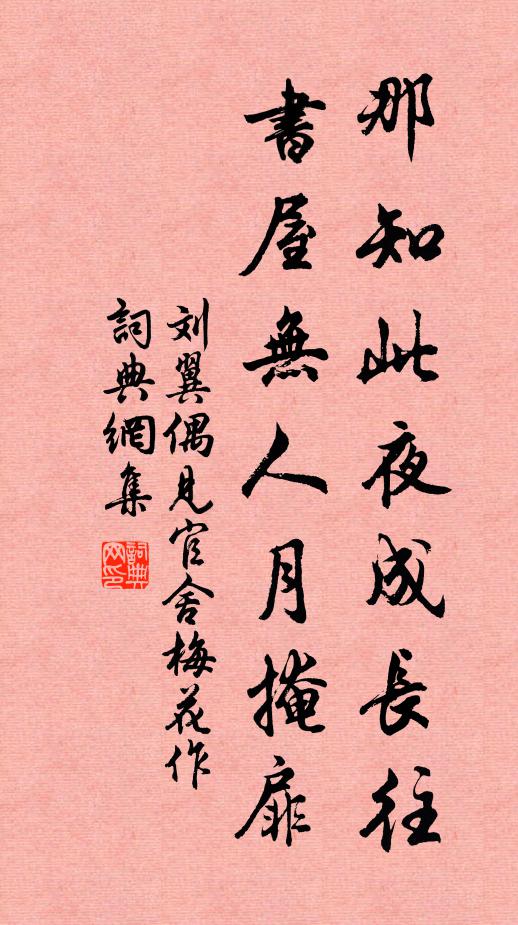 那知此夜成長往
書屋無人月掩扉
刘翼偶見官舍梅花作
詞典網集
詞典网印